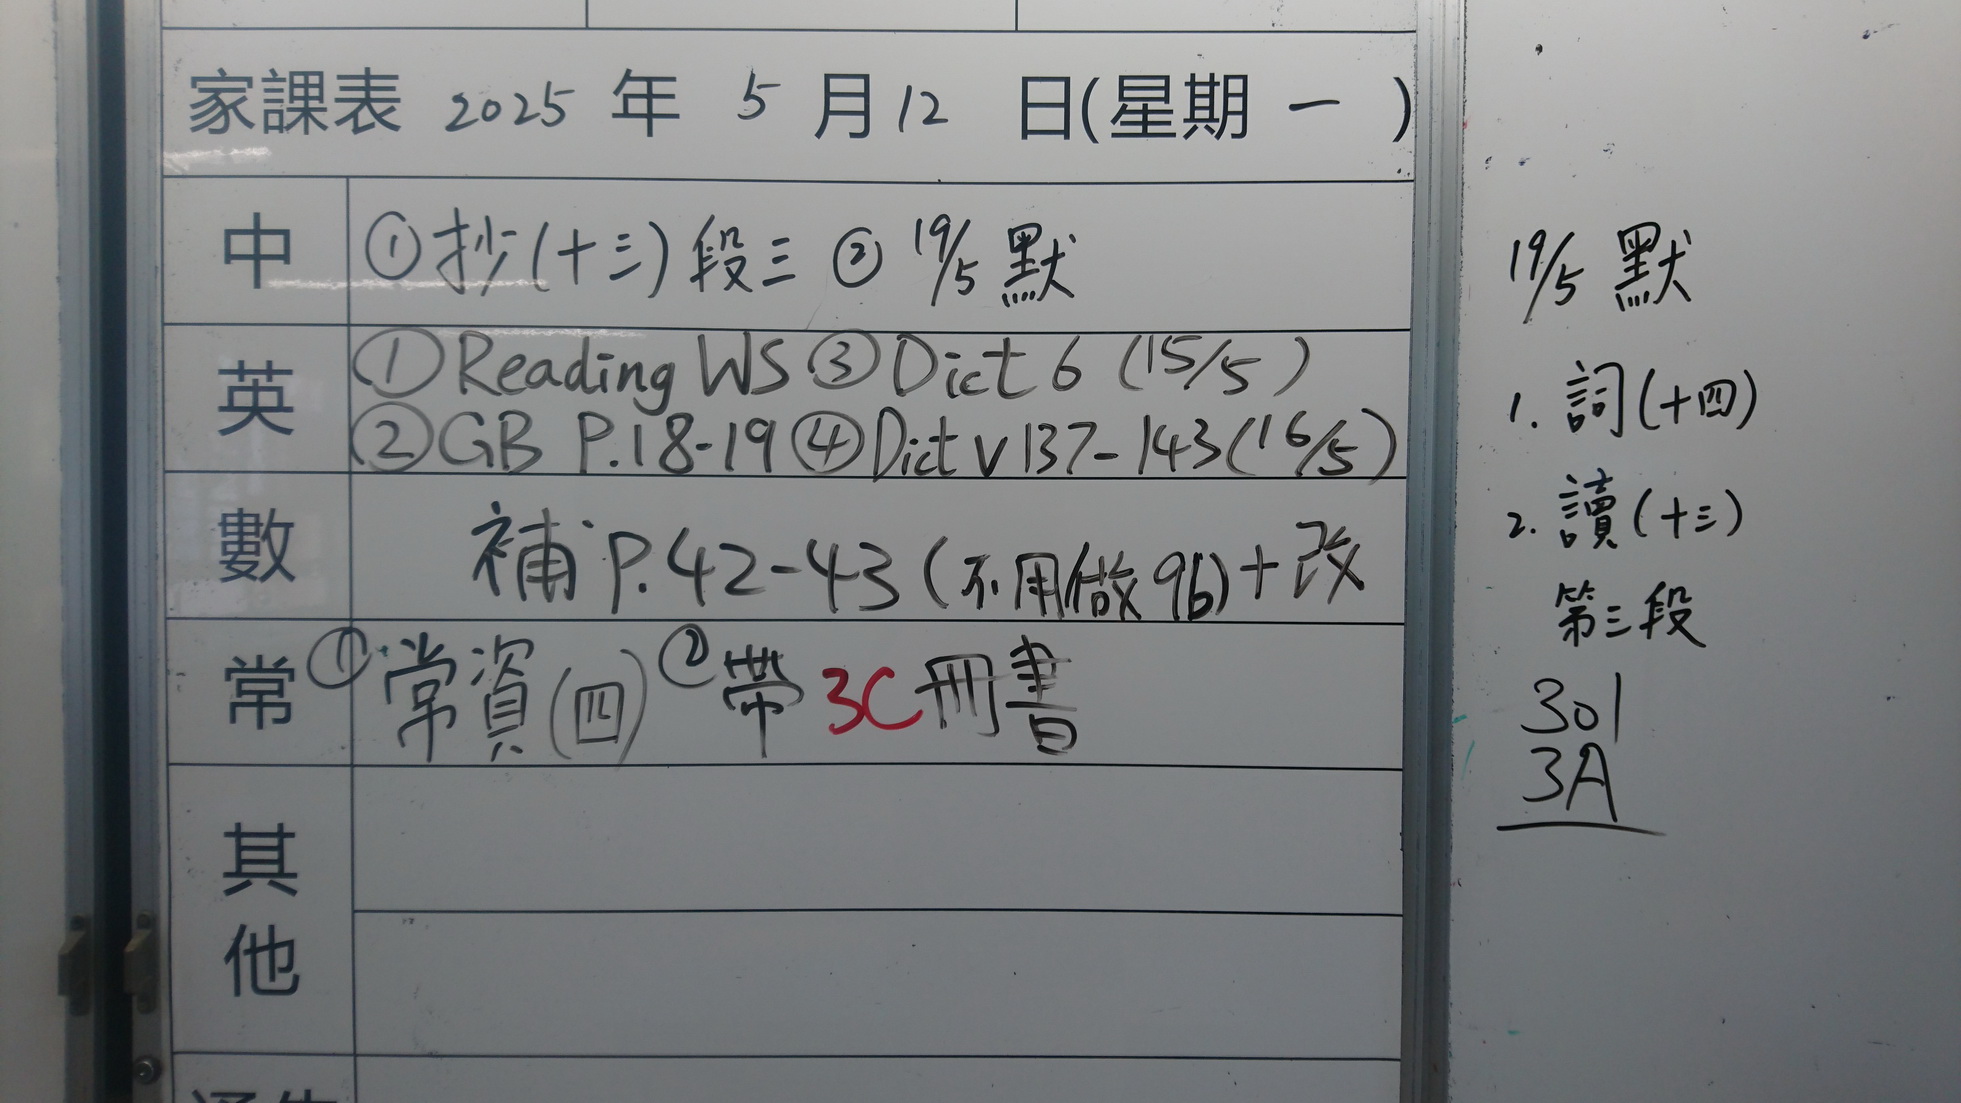 家課表 2025 年 5 月 12 日(星期 一 )
中 ①抄(十三)段三 ② 19/5 默
英 ①Reading WS ③Dict 6 (15/5)
②GB P.18-19 ④Dict v 137-143(16/5)
數 補 P.42-43 (不用做9b)+改
常 ①常資(四) ②帶3C冊書
其他
19/5 默
1. 詞(十四)
2. 讀(十三)
第三段
301
3A